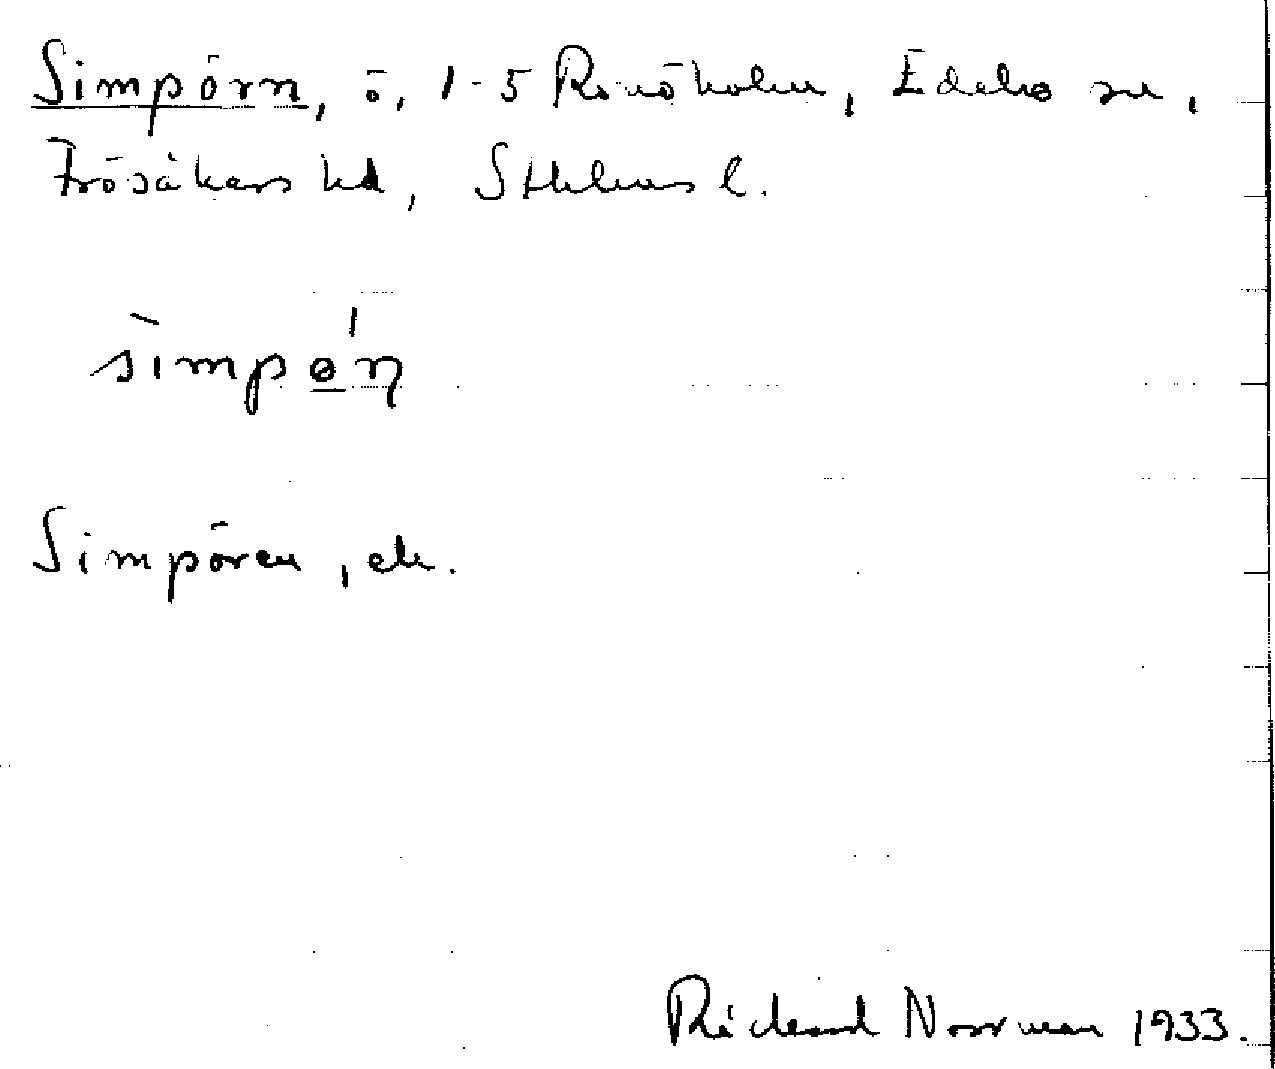 Simpörn, ö, 1-5 Rönöholm, Edebo sn,
Frösåkers hd, Sthlms l.
sìmpǿ̱ƞ
Simpören, ek.
Rickard Norrman 1933.